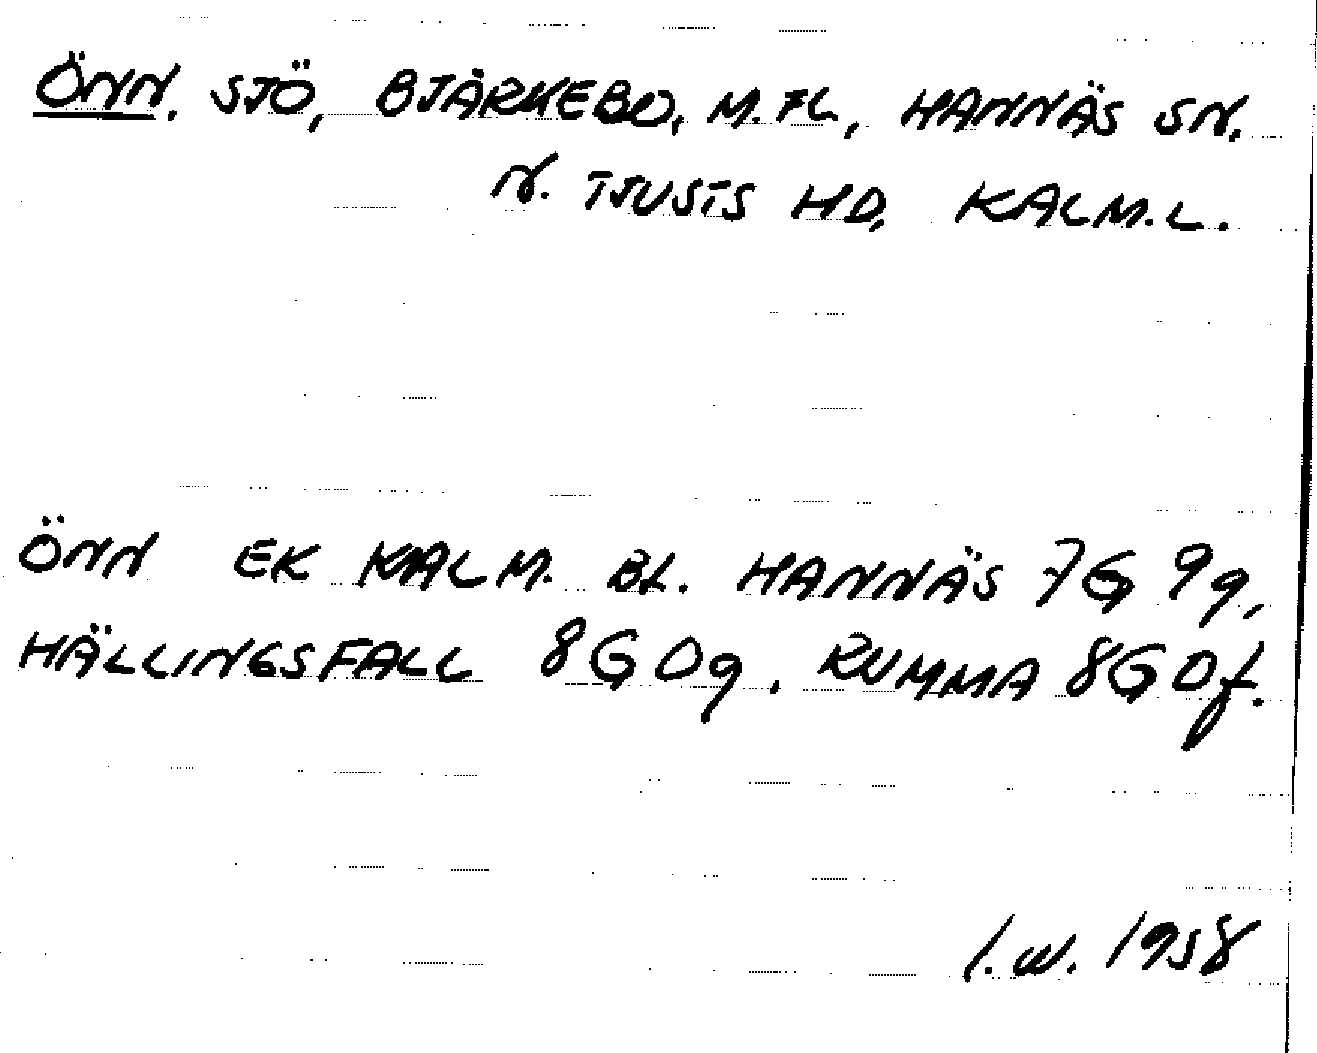 ÖNN. SJÖ, BJÄRKEBO, M.FL., HANNÄS SN.
N. TJUSTS HD, KALM.L.
ÖNN EK KALM. BL. HANNÄS 7G 9g,
HÄLLINGSFALL 8G 0g, RUMMA 8G 0f.
I.W. 1958